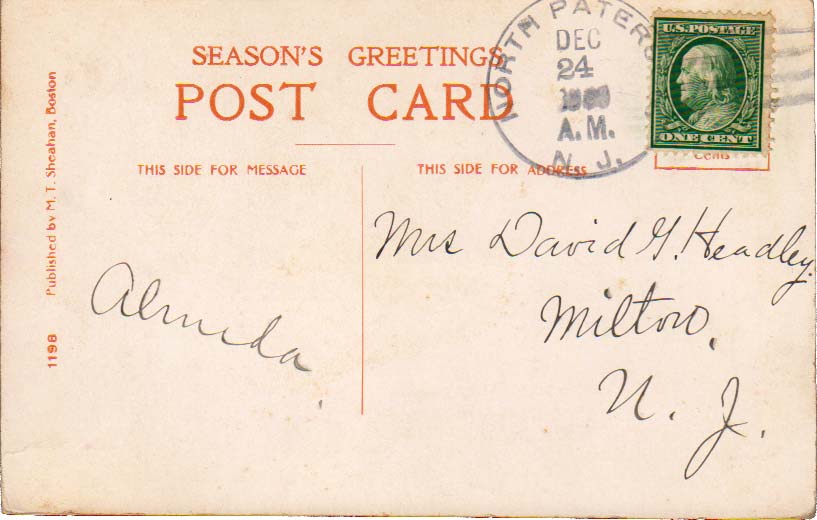 SEASON'S GREETINGS
POST CARD
THIS SIDE FOR MESSAGE
THIS SIDE FOR ADDRESS
Published by M. T. Sheahan, Boston
1198
NORTH PATERS
DEC
24
A.M.
N. J.
U.S. POSTAGE
ONE CENT
Cents
Almeda.
Mrs David G. Headley.
Milton,
N. J.